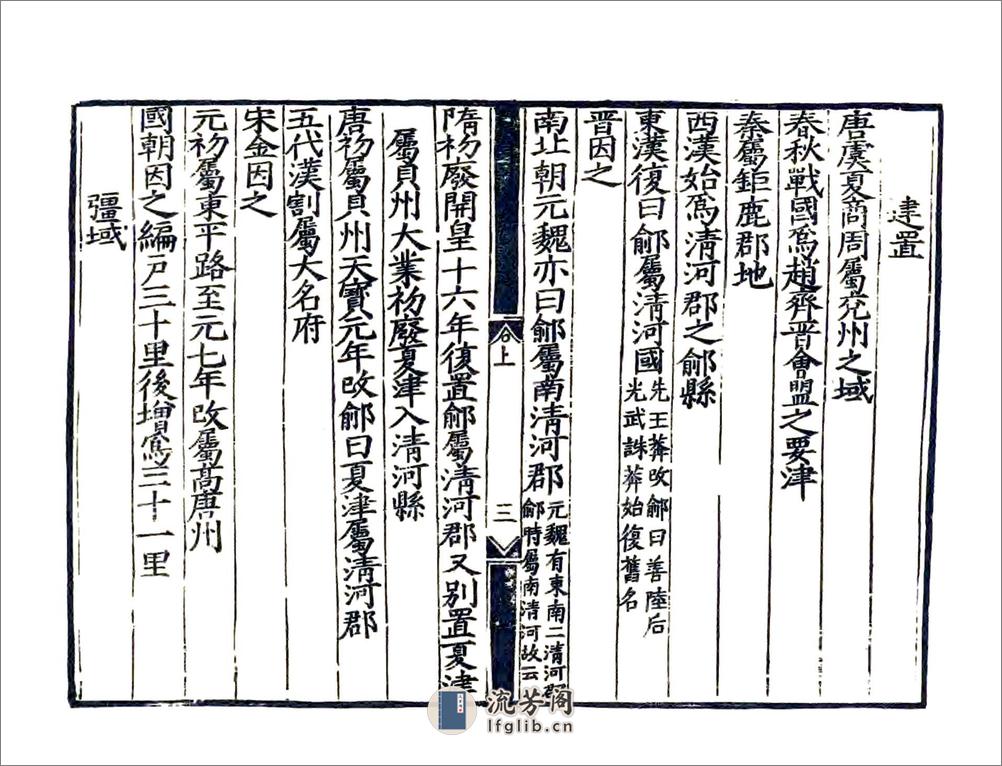 建置
唐虞夏商周屬兖州之域
春秋戰國爲趙齊晋會盟之要津
秦屬鉅鹿郡地
西漢始爲清河郡之鄃縣
東漢復曰鄃屬清河國先王莽改鄃曰善陸后
光武誅莽始復舊名
晋因之
南北朝元魏亦曰鄃屬南清河郡元魏有東南二清河郡
鄃時屬南清河故云
合上
三
隋初廢開皇十六年復置鄃屬清河郡又别置夏津
屬貝州大業初廢夏津入清河縣
唐初屬貝州天寶元年改鄃曰夏津屬清河郡
五代漢割屬大名府
宋金因之
元初屬東平路至元七年改屬高唐州
國朝因之編戸三十里後增爲三十一里
疆域
流芳阁
lfglib.cn